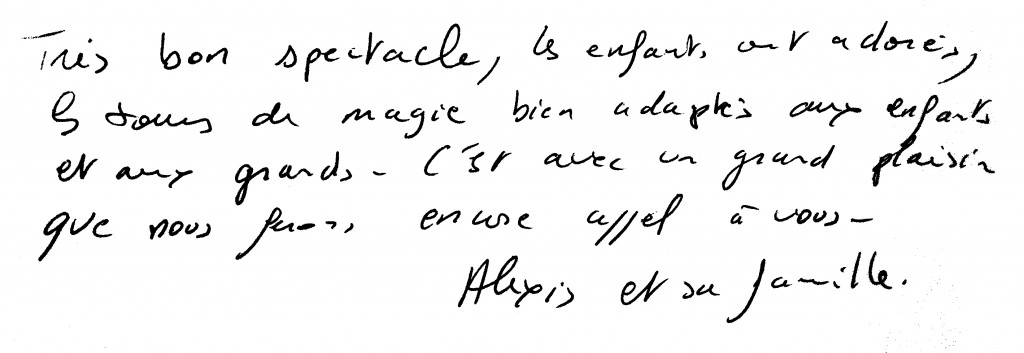 Très bon spectacle, les enfants ont adorés,
les tours de magie bien adaptés aux enfants
et aux grands - C'est avec un grand plaisir
que nous ferons encore appel à vous -
Alexis et sa famille.